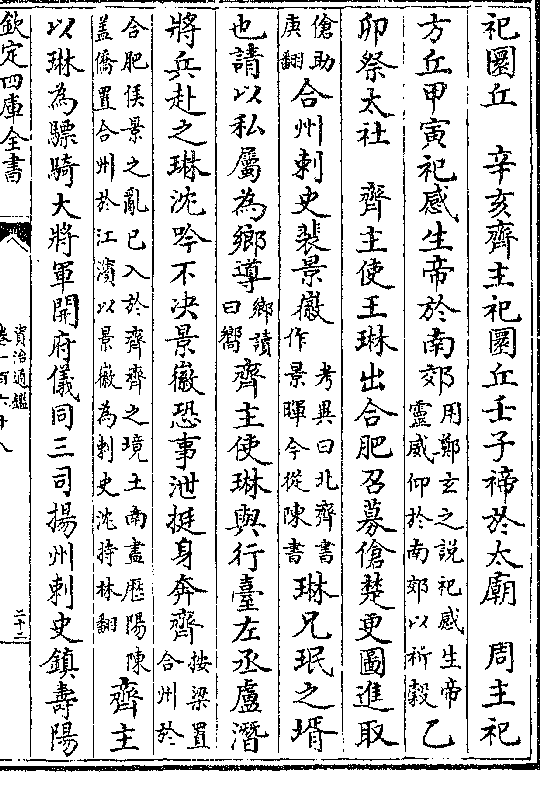 祀圜丘　辛亥齊主祀圜丘壬子禘於太廟　周主祀
方丘甲寅祀感生帝於南郊用鄭玄之説祀感生帝靈威仰於南郊以祈穀乙
卯祭太社　齊主使王琳出合肥召募傖楚更圖進取
傖助庚翻合州刺史裴景徽考異曰北齊書作景暉今從陳書琳兄珉之壻
也請以私屬為鄉導鄉讀曰嚮齊主使琳與行臺左丞盧潛
將兵赴之琳沈吟不決景徽恐事泄挺身奔齊按梁置合州於
合肥侯景之亂已入於齊齊之境土南盡歷陽陳蓋僑置合州於江濱以景徽為刺史沈持林翻齊主
以琳為驃騎大將軍開府儀同三司揚州刺史鎮壽陽
欽定四庫全書
資治通鑑
卷一百六十八
二十二